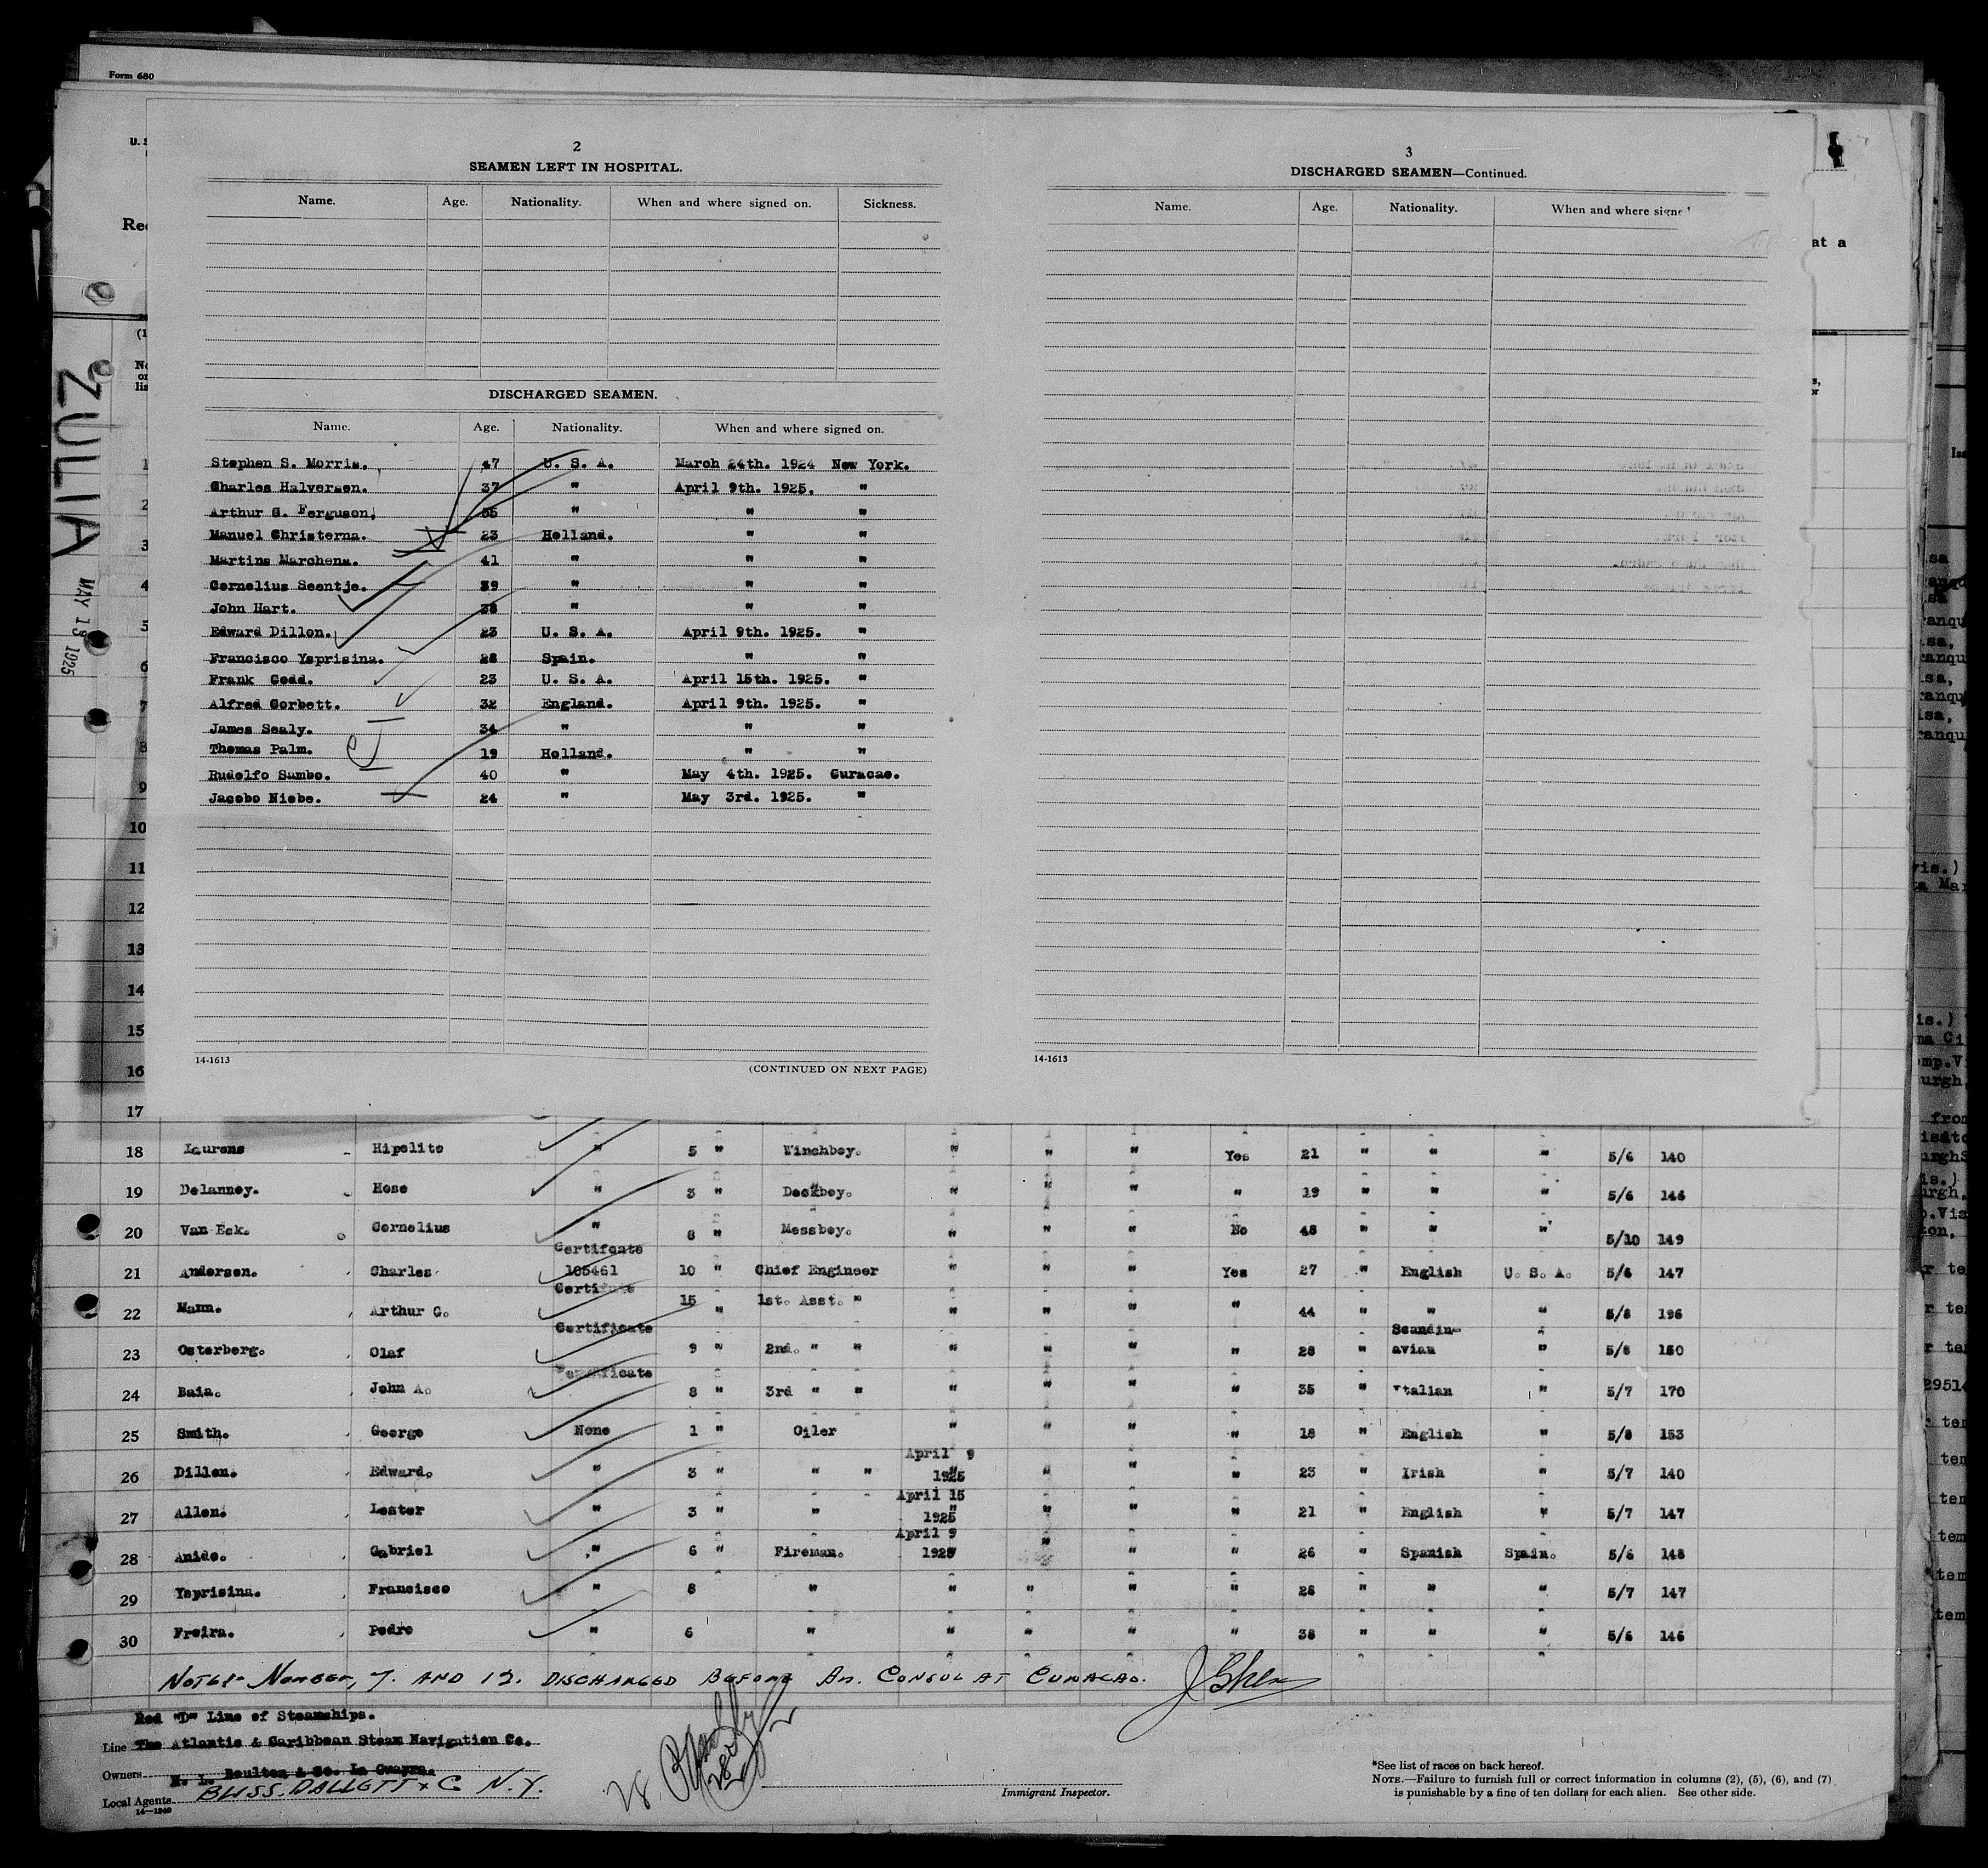 Form 680
U. S
2
SEAMEN LEFT IN HOSPITAL.
Name. Age. Nationality. When and where signed on. Sickness.
DISCHARGED SEAMEN.
Name. Age. Nationality. When and where signed on.
Stephen S. Morris. 47 U. S. A. March 24th. 1924 New York.
Charles Halversen. 37 " April 9th. 1925. "
Arthur G. Ferguson. 55 " " "
Manuel Christerna. 23 Holland. " "
Martins Marchena. 41 " " "
Cornelius Seentje. 39 " " "
John Hart. 38 " " "
Edward Dillon. 23 U. S. A. April 9th. 1925. "
Francisco Ysprisina. 28 Spain. " "
Frank Codd. 23 U. S. A. April 15th. 1925. "
Alfred Corbett. 32 England. April 9th. 1925. "
James Sealy. 34 " " "
Thomas Palm. 19 Holland. " "
Rudolfo Sambo. 40 " May 4th. 1925. Curacao.
Jacobo Niebo. 24 " May 3rd. 1925. "
14-1613
(CONTINUED ON NEXT PAGE)
3
DISCHARGED SEAMEN—Continued.
Name. Age. Nationality. When and where signe
14-1613
at a
ZULIA
MAY 13 1925
1
2
3
4
5
6
7
8
9
10
11
12
13
14
15
16
17
18 Laurens Hipolito " 5 " Winchboy. " " " Yes 21 " " " 5/6 140
19 Delanney. Hose " 3 " Deckboy. " " " " 19 " " " 5/6 146
20 Van Eck. Cornelius " 8 " Messboy. " " " No 48 " " " 5/10 149
Certifcate
21 Andersen. Charles 185461 10 " Chief Engineer " " " Yes 27 " English U. S. A. 5/6 147
Certificate
22 Mann. Arthur G. 15 " 1st. Asst. " " " " " 44 " " " 5/8 196
Certificate
23 Osterberg. Olaf 9 " 2nd. " " " " " " 28 " Scandin-avian " 5/8 150
Certificate
24 Baia. John A. 8 " 3rd " " " " " " 35 " Italian " 5/7 170
25 Smith. George None 1 " Oiler " " " " 18 " English " 5/8 153
26 Dillon. Edward. " 3 " " " April 9 1925 " " " 23 " Irish " 5/7 140
27 Allen. Lester " 3 " " April 15 1925 " " " 21 " English " 5/7 147
28 Anido. Gabriel " 6 " Fireman. April 9 1925 " " " 26 " Spanish Spain. 5/6 148
29 Ysprisina. Francisco " 8 " " " " " 28 " " " 5/7 147
30 Freira. Pedro " 6 " " " " " 38 " " " 5/6 146
NOTE:- NUMBER, 7. AND 12. DISCHARGED BEFORE AM. CONSUL AT CURACAO.
Red "D" Line of Steamships.
Line The Atlantic & Caribbean Steam Navigation Co.
Owners H. L. Boulton & Co. La Guayra
Local Agents BLISS, DALLETT & C N.Y.
14—1240
28
Immigrant Inspector.
*See list of races on back hereof.
NOTE.—Failure to furnish full or correct information in columns (2), (5), (6), and (7)
is punishable by a fine of ten dollars for each alien. See other side.